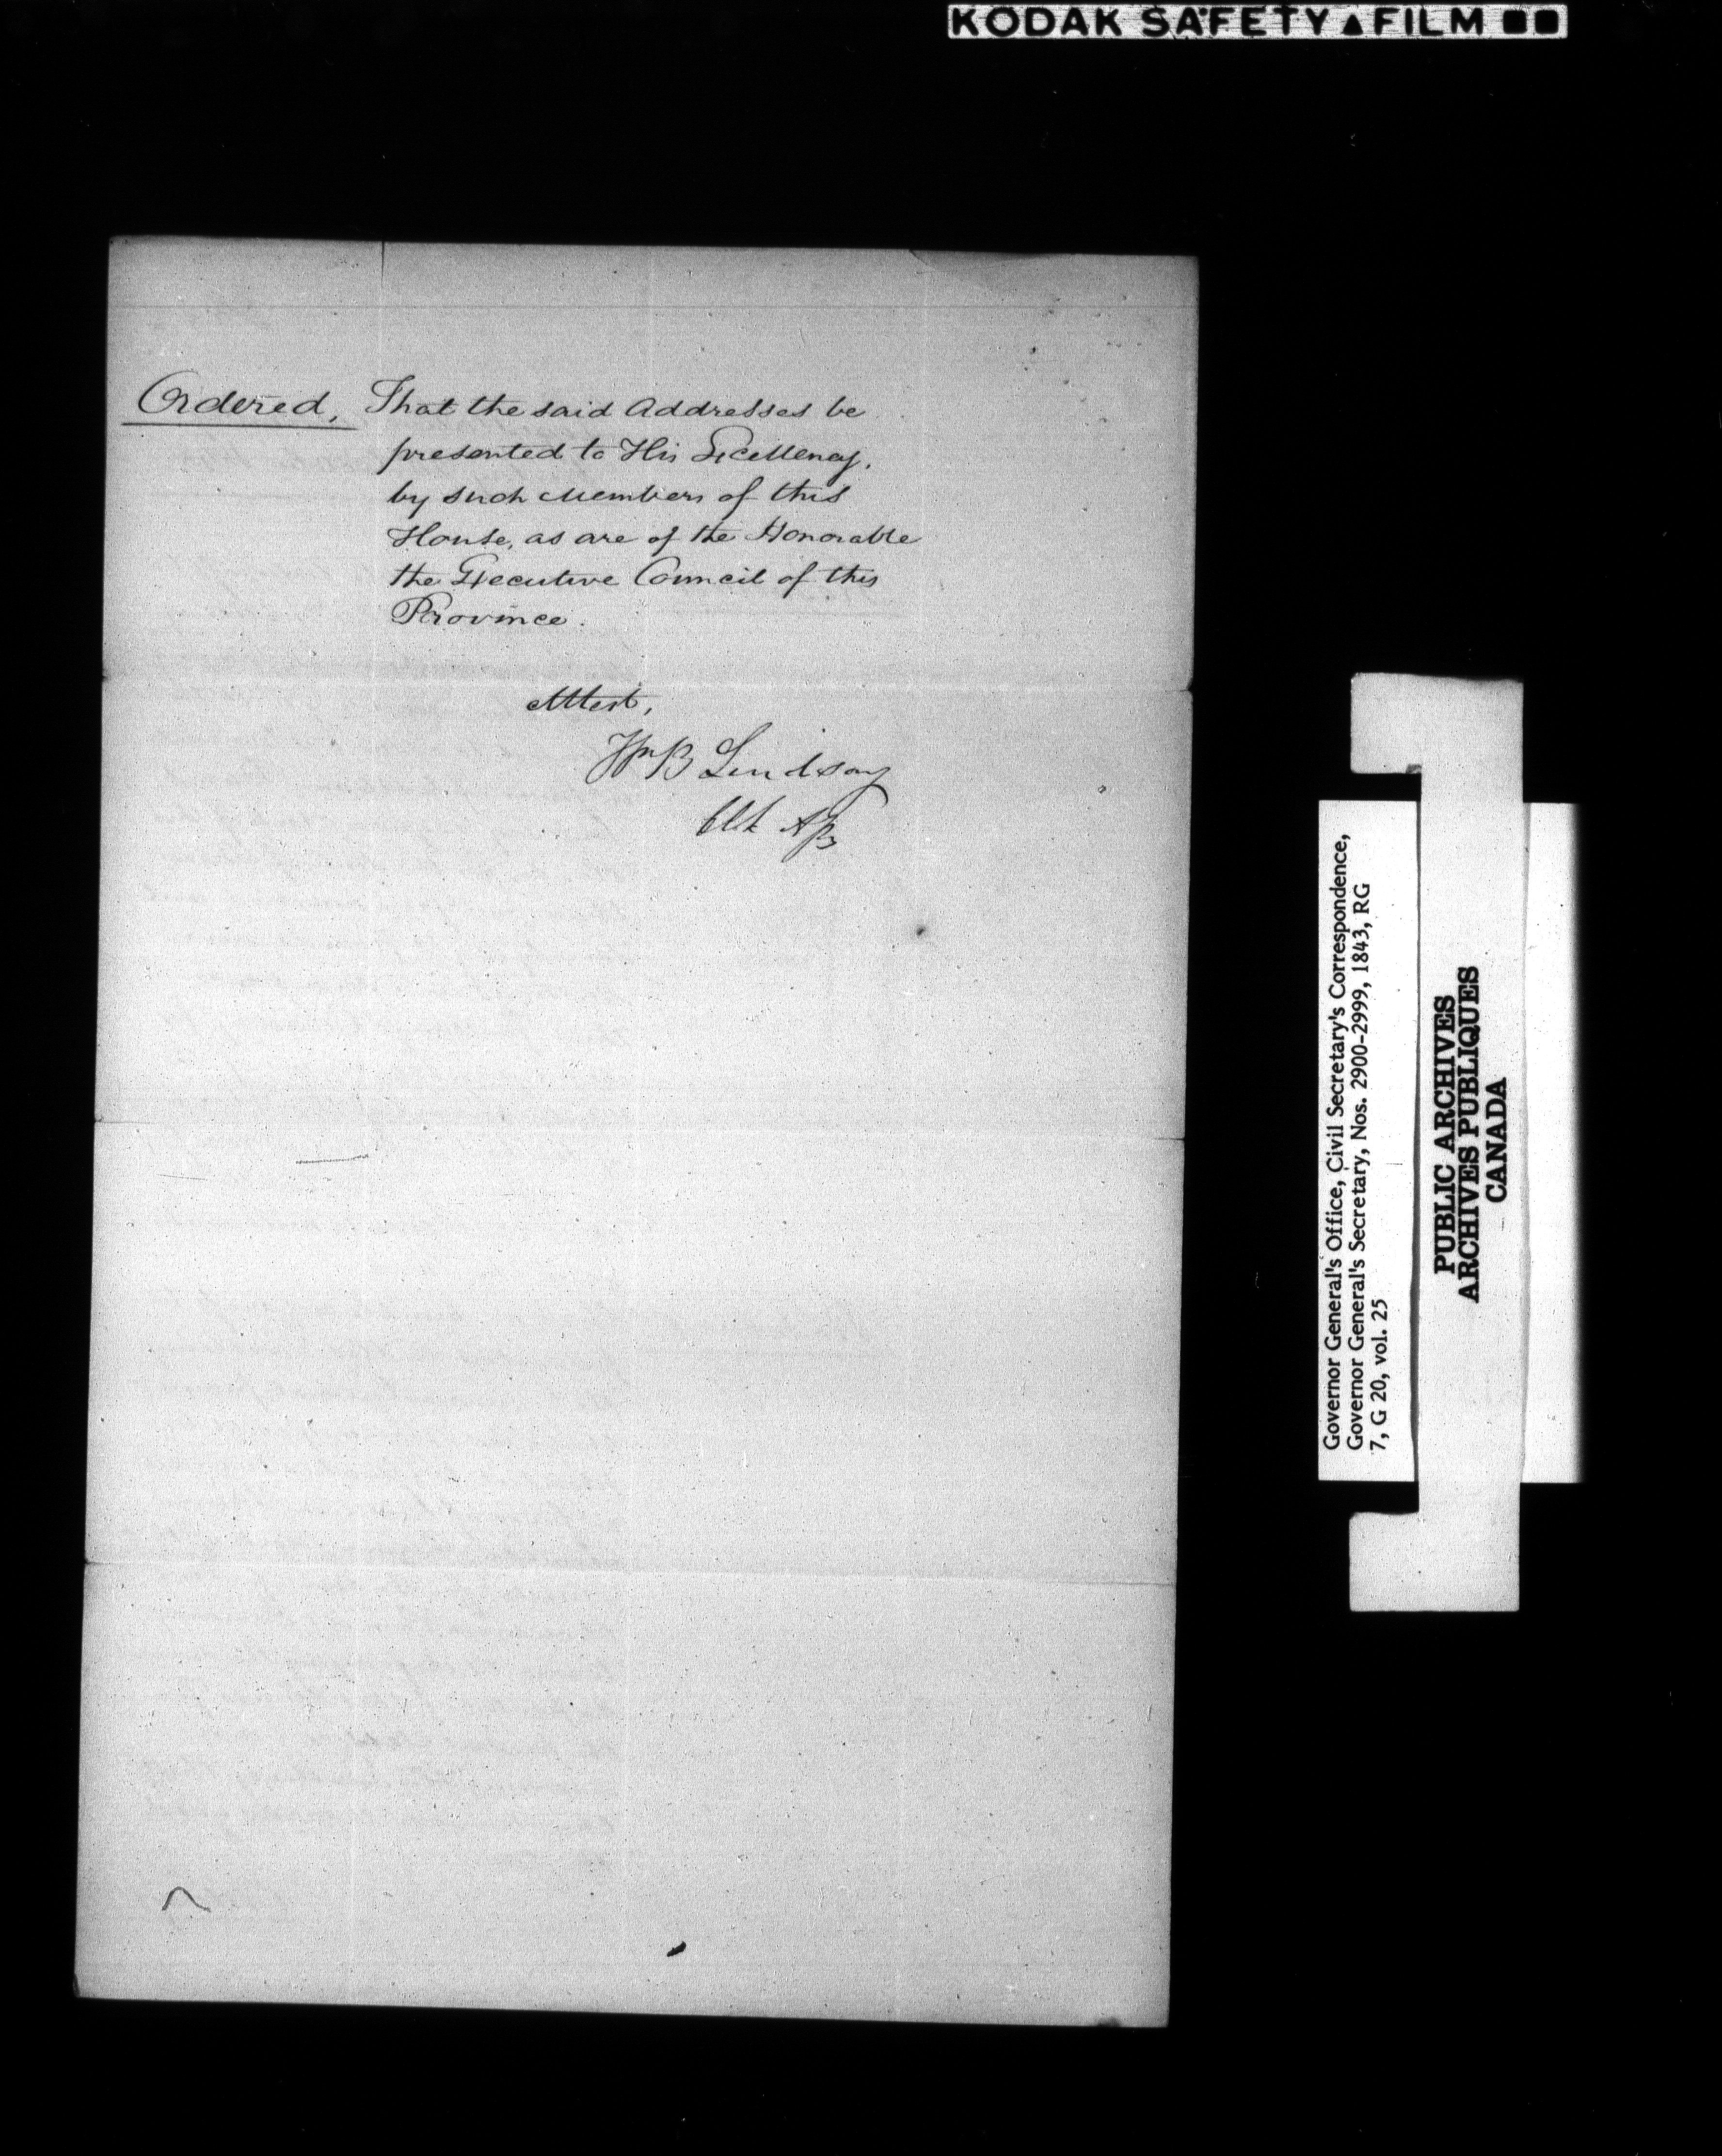 KODAK SAFETY ▲ FILM ■■
Ordered, That the said Addresses be
presented to His Excellency,
by such Members of this
House, as are of the Honorable
the Executive Council of this
Province.
Attest,
Wm B Lindsay
Clk Assy
Governor General's Office, Civil Secretary's Correspondence,
Governor General's Secretary, Nos. 2900-2999, 1843, RG
7, G 20, vol. 25
PUBLIC ARCHIVES
ARCHIVES PUBLIQUES
CANADA